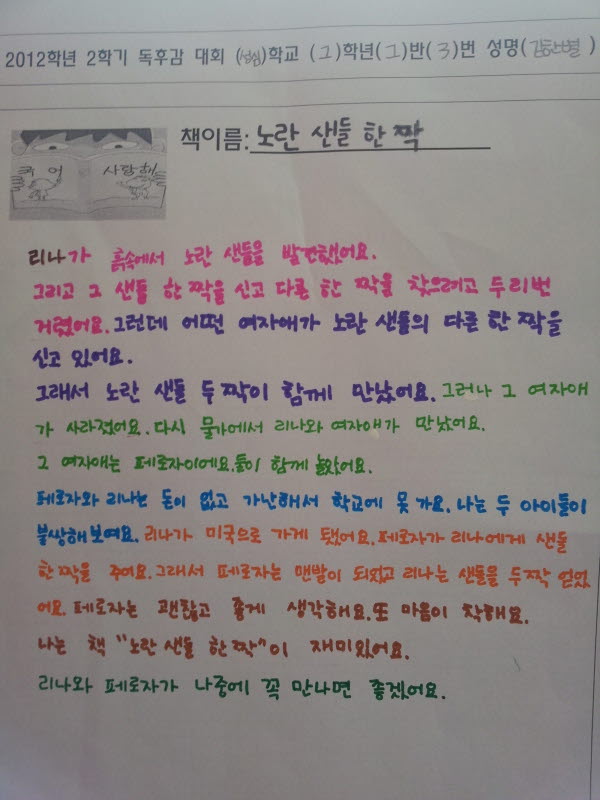 2012학년 2학기 독후감 대회 (성심)학교 (1)학년(1)반(3)번 성명(김한별)
책이름: 노란 샌들 한 짝
국어 사랑해
리나가 흙속에서 노란 샌들을 발견했어요.
그리고 그 샌들 한 짝을 신고 다른 한 짝을 찾으려고 두리번
거렸어요. 그런데 어떤 여자애가 노란 샌들의 다른 한 짝을
신고 있어요.
그래서 노란 샌들 두 짝이 함께 만났어요. 그러나 그 여자애
가 사라졌어요. 다시 물가에서 리나와 여자애가 만났어요.
그 여자애는 페로자이에요. 둘이 함께 놀았어요.
페로자와 리나는 돈이 없고 가난해서 학교에 못 가요. 나는 두 아이들이
불쌍해 보여요. 리나가 미국으로 가게 됐어요. 페로자가 리나에게 샌들
한 짝을 주어요. 그래서 페로자는 맨발이 되었고 리나는 샌들을 두 짝 얻었
어요. 페로자는 괜찮고 좋게 생각해요. 또 마음이 착해요.
나는 책 "노란 샌들 한 짝"이 재미있어요.
리나와 페로자가 나중에 꼭 만나면 좋겠어요.